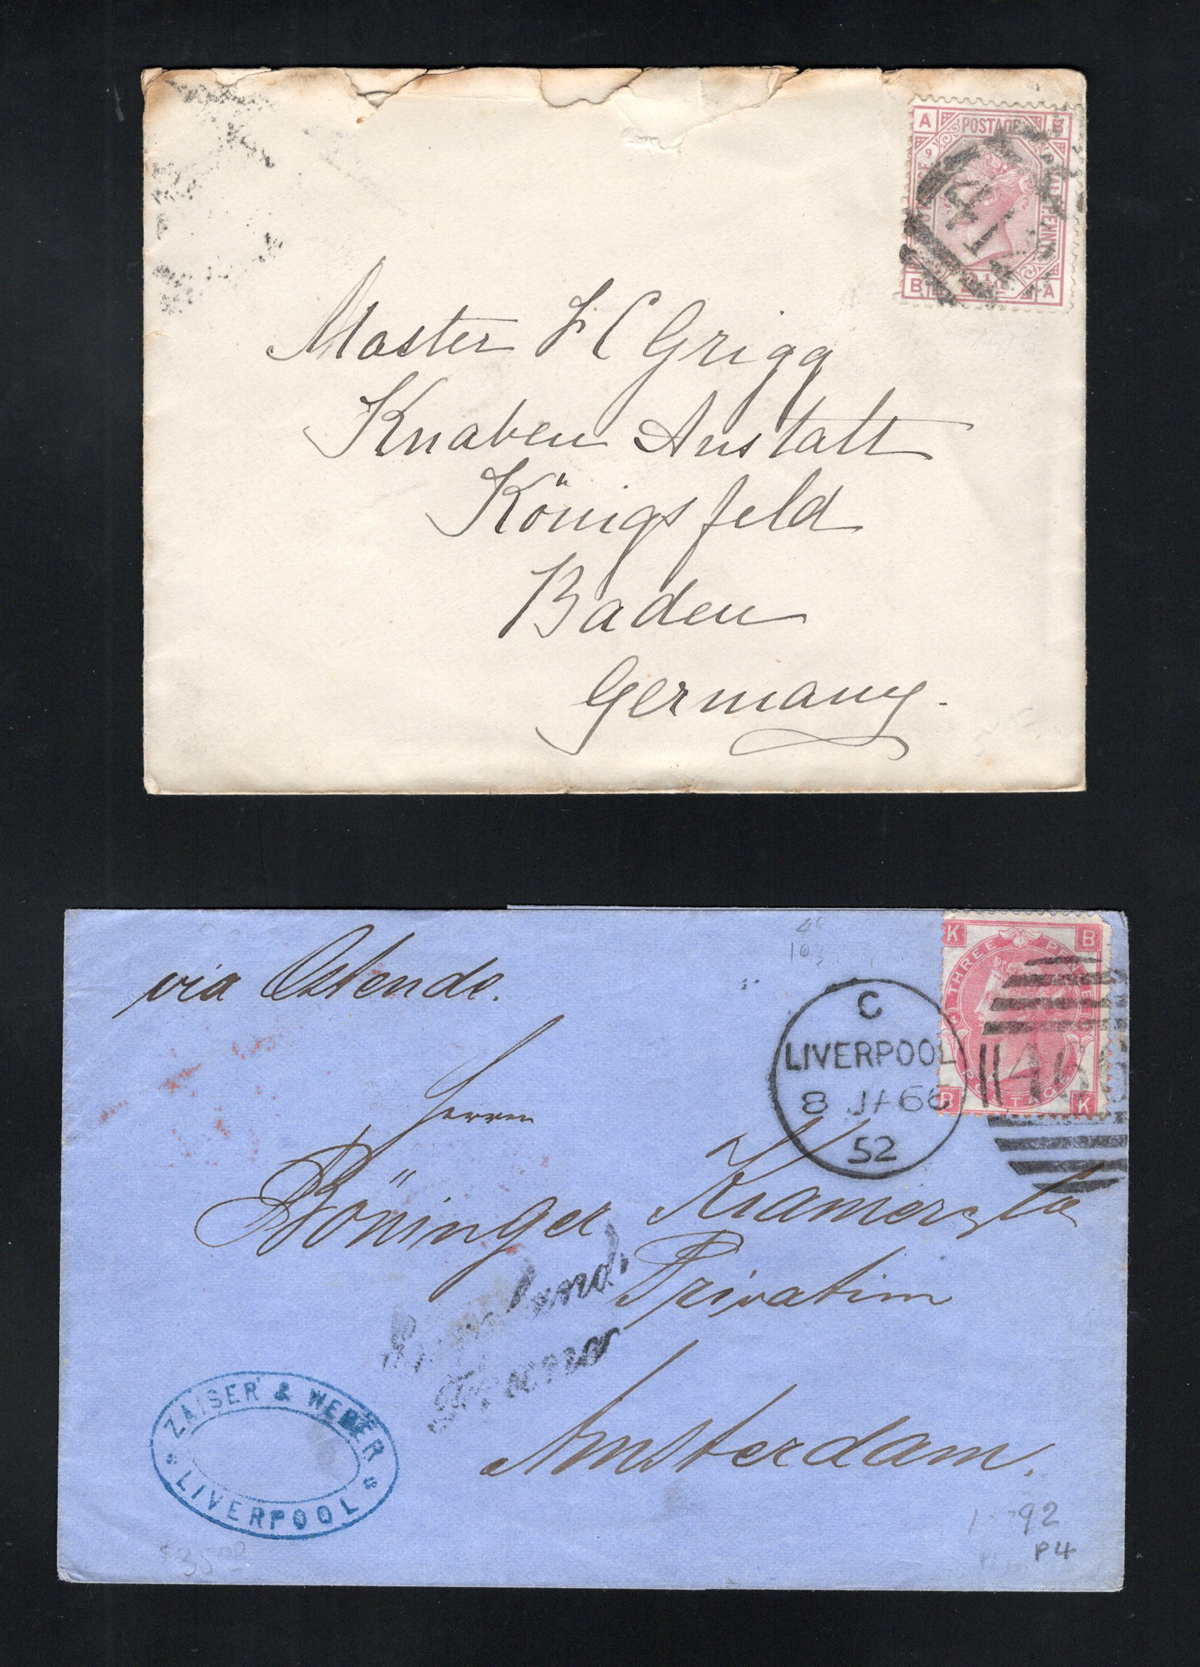 A POSTAGE B
9
2
PENNY
B A
41
Master F C Grigg
Knaben Anstalt
Königsfeld
Baden
Germany.
via Ostende.
40
103
C
LIVERPOOL
8 JA 66
52
K B
THREE PENCE
POSTAGE
B K
466
Herrn
Böninger Kramer & Co
Privatim
Amsterdam.
Franco
ZAISER & WEBER
LIVERPOOL
$35.00
92
P4